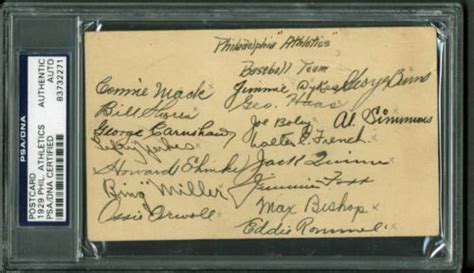 POSTCARD
1929 PHIL. ATHLETICS
PSA/DNA CERTIFIED
AUTHENTIC
AUTO
83732271
PSA/DNA
Philadelphia "Athletics"
Baseball Team
Connie Mack
Jimmie Dykes
George Burns
Bill
Geo. Haas
George Earnshaw
Joe Boley
Al Simmons
Lefty
Walter E. French
Howard Ehmke
Jack Quinn
Bing "Miller"
Jimmie Foxx
Ossie Orwoll
Max Bishop
Eddie Rommel